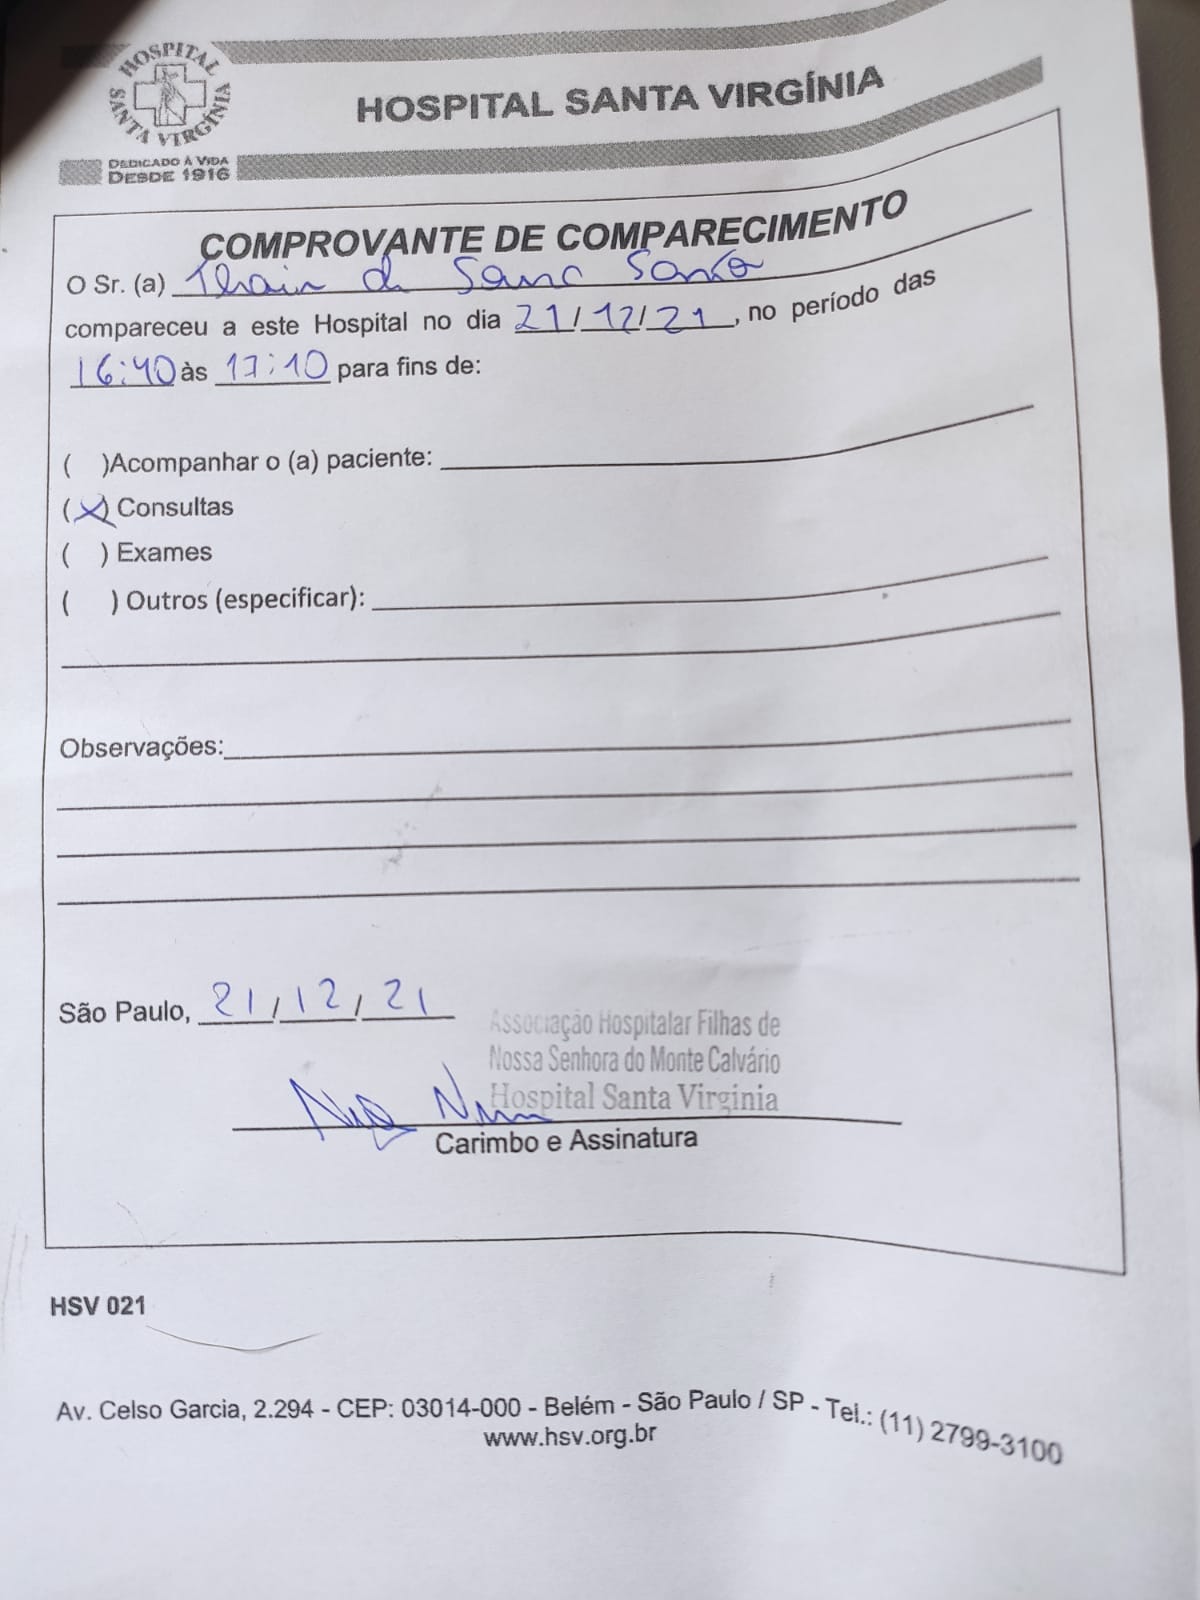 HOSPITAL SANTA VIRGÍNIA
DEDICADO À VIDA
DESDE 1916
HOSPITAL SANTA VIRGÍNIA
COMPROVANTE DE COMPARECIMENTO
O Sr. (a)
compareceu a este Hospital no dia 21/12/21, no período das
16:40 às 17:10 para fins de:
( )Acompanhar o (a) paciente:
(X) Consultas
( ) Exames
( ) Outros (especificar):
Observações:
São Paulo, 21/12/21
Associação Hospitalar Filhas de
Nossa Senhora do Monte Calvário
Hospital Santa Virginia
Carimbo e Assinatura
HSV 021
Av. Celso Garcia, 2.294 - CEP: 03014-000 - Belém - São Paulo / SP - Tel.: (11) 2799-3100
www.hsv.org.br